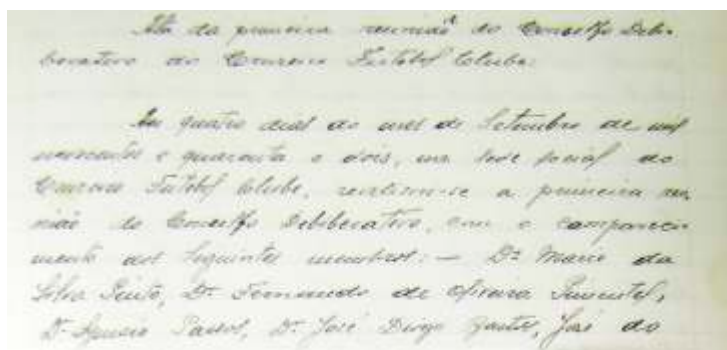 Ata da primeira reunião do Conselho Deli-
berativo do Cruzeiro Futebol Clube.
Aos quatro dias do mês de Setembro de mil
novecentos e quarenta e dois, na sede social do
Cruzeiro Futebol Clube, realizou-se a primeira reu
nião do Conselho Deliberativo, com o compareci
mento dos seguintes membros: — Dr. Mario da
Silva Pinto, Dr. Fernando de Oliveira Pimentel,
Dr. Passos, Dr. José Diogo José do